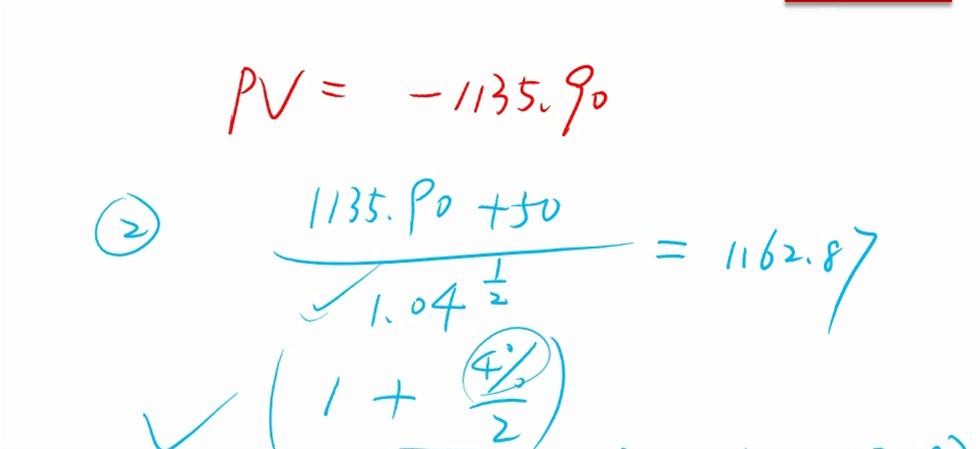 PV = -1135.90
② (1135.90 + 50) / 1.04^(1/2) = 1162.87
(1 + 4%/2)